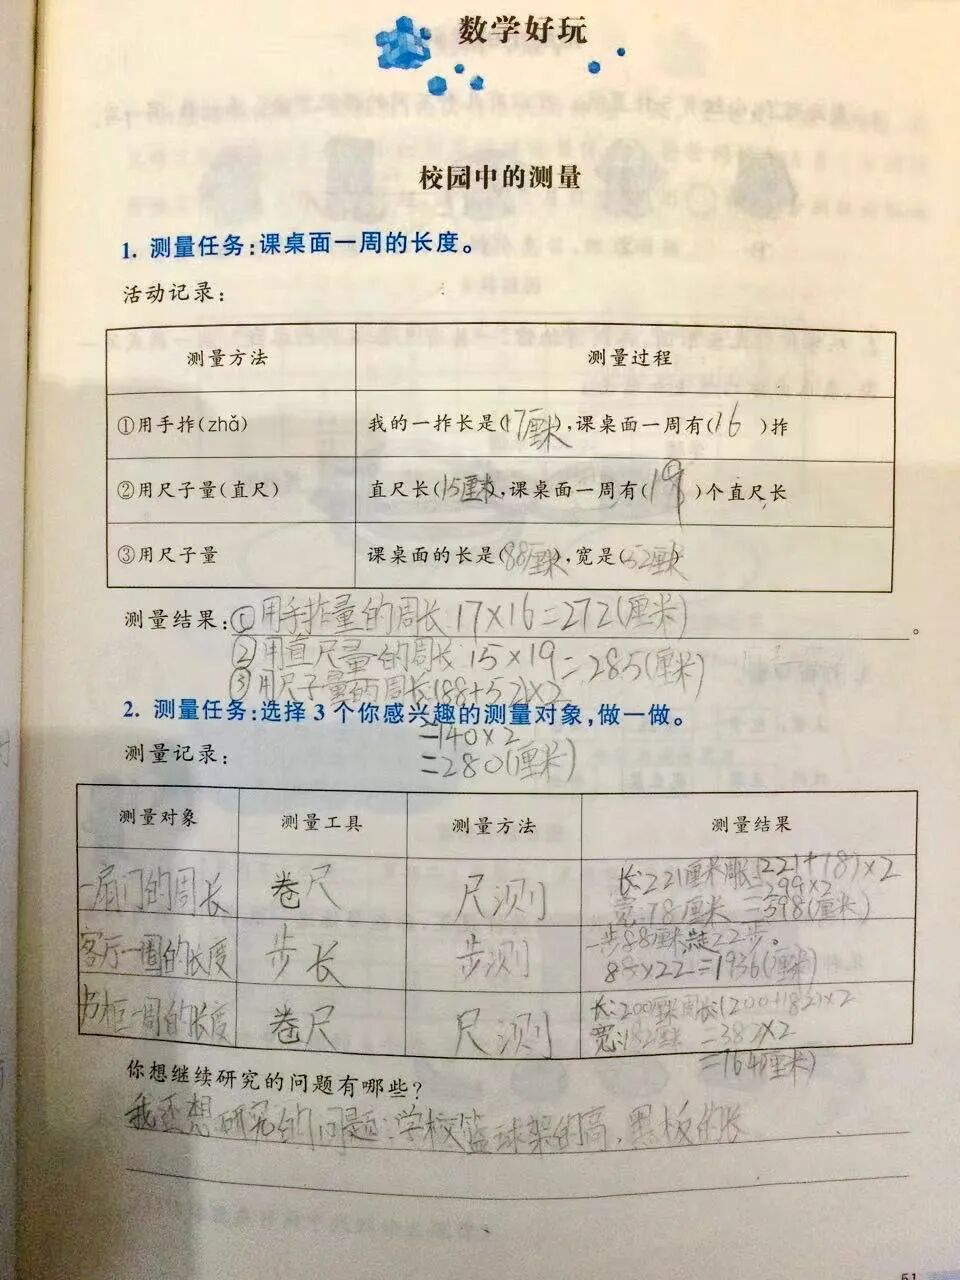 数学好玩
校园中的测量
1. 测量任务:课桌面一周的长度。
活动记录:
测量方法 测量过程
①用手拃(zhǎ) 我的一拃长是(17厘米),课桌面一周有(16)拃
②用尺子量(直尺) 直尺长(15厘米),课桌面一周有(19)个直尺长
③用尺子量 课桌面的长是(88厘米),宽是(52厘米)
测量结果:①用手拃量的周长17×16=272(厘米)。
②用直尺量的周长15×19=285(厘米)
③用尺子量的周长(88+52)×2
2. 测量任务:选择3个你感兴趣的测量对象,做一做。
=140×2
测量记录:
=280(厘米)
测量对象 测量工具 测量方法 测量结果
一扇门的周长 卷尺 尺测 长:221厘米 (221+78)×2
=299×2
宽:78厘米 =598(厘米)
客厅一周的长度 步长 步测 一步88厘米 22步。
88×22=1936(厘米)
一周的长度 卷尺 尺测 长:200厘米周长:(200+182)×2
宽:182厘米 =382×2
=764(厘米)
你想继续研究的问题有哪些?
我还想研究的问题:学校篮球架的高、黑板的长
51